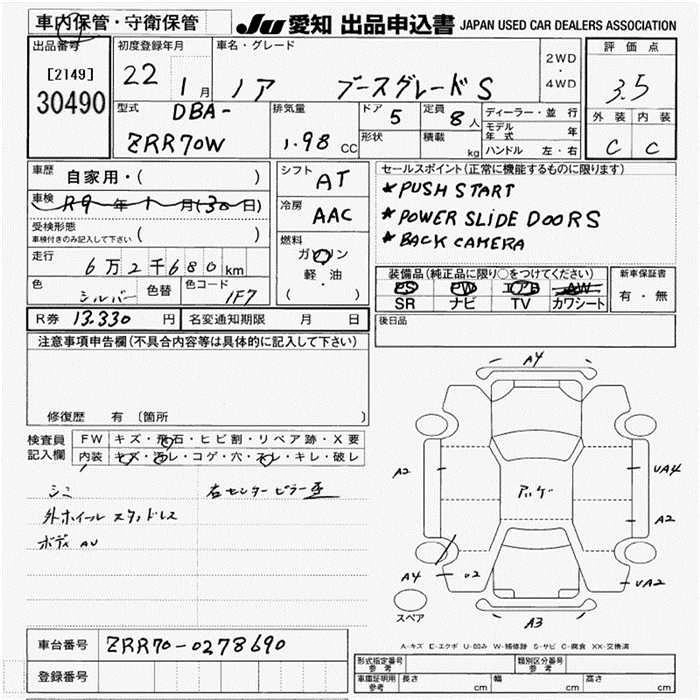 車内保管・守衛保管
JU 愛知 出品申込書 JAPAN USED CAR DEALERS ASSOCIATION
出品番号
[2149]
30490
初度登録年月
22 1月
車名・グレード
ノア ブースグレードS
2WD
・
4WD
評価点
3.5
外装 内装
C C
型式
DBA-
ZRR70W
排気量
1.98 CC
ドア
5
定員
8人
形状
積載
kg
ディーラー・並行
モデル年式 年
ハンドル 左・右
車歴 自家用・( )
車検 R9年1月(30日)
受検形態
車検付きのみ記入して下さい ( )
走行 6万2千680km
色 シルバー 色替
色コード 1F7
シフト AT
冷房 AAC
燃料
ガソリン
軽・油
( )
セールスポイント(正常に機能するものに限ります)
*PUSH START
*POWER SLIDE DOORS
*BACK CAMERA
装備品(純正品に限り○をつけてください)
PS PW エアB AW
SR ナビ TV カワシート
新車保証書
有・無
後日品
R券 13,330円
名変通知期限 月 日
注意事項申告欄(不具合内容等は具体的に記入して下さい)
修復歴 有 〔箇所 〕
検査員記入欄
FW キズ・飛石・ヒビ割・リペア跡・X要
内装 キズ・汚レ・コゲ・穴・スレ・キレ・破レ
シミ
外ホイール スタッドレス
ボディ AU
右センターピラー歪
A4
A2
UA4
A2
A4
U2
UA2
A3
スペア
A-キズ E-エクボ U-凹み W-補修跡 S-サビ C-腐食 XX-交換済
車台番号 ZRR70-0278690
登録番号
形式指定番号
参考
類別区分番号
参考
車庫証明用
参考
長さ cm
幅 cm
高さ cm